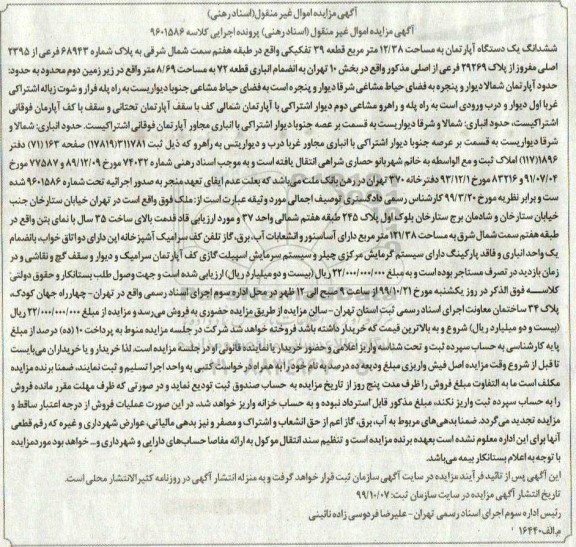 آگهی مزایده اموال غیر منقول (اسناد رهنی)
آگهی مزایده اموال غیر منقول (اسناد رهنی) پرونده اجرایی کلاسه ۹۶۰۱۵۸۶
ششدانگ یک دستگاه آپارتمان به مساحت ۱۲/۳۸ متر مربع قطعه ۳۹ تفکیکی واقع در طبقه هفتم سمت شمال شرقی به پلاک شماره ۶۸۹۴۳ فرعی از ۲۳۹۵
اصلی مفروز از پلاک ۲۹۲۶۹ فرعی از اصلی مذکور واقع در بخش ۱۰ تهران به انضمام انباری قطعه ۷۲ به مساحت ۸/۶۹ متر واقع در زیر زمین دوم محدود به حدود:
حدود آپارتمان شمالا دیوار و پنجره به فضای حیاط مشاعی شرقا دیوار و پنجره است به فضای حیاط مشاعی جنوبا دیواریست به راه پله فرار و شوت زباله اشتراکی
غربا اول دیوار و درب ورودی است به راه پله و راهرو مشاعی دوم دیوار اشتراکی با آپارتمان شمالی کف با سقف آپارتمان تحتانی و سقف با کف آپارمان فوقانی
اشتراکیست، حدود انباری: شمالا و شرقا دیواریست به قسمت بر عصه جنوبا دیوار اشتراکی با انباری مجاور آپارتمان فوقانی اشتراکیست. حدود انباری: شمالا و
شرقا دیواریست به قسمت بر عرصه جنوبا دیوار اشتراکی با انباری مجاور غربا درب و دیواریتس به راهرو که ذیل ثبت ۳۱۱۷۸۱(۱۷۸۱۹) صفحه ۱۶۳ (۷۱) دفتر
۱۸۹۶(۱۱۷) املاک ثبت و مع الواسطه به خانم شهربانو حصاری شراهی انتقال یافته است و به موجب اسناد رهنی شماره ۷۴۰۳۲ مورخ ۸۹/۱۲/۰۹ و ۷۷۵۸۷ مورخ
۹۱/۰۷/۰۴ و ۸۳۲۱۶ مورخ ۹۳/۱۲/۱ دفترخانه ۳۷۰ تهران در رهن بانک ملت می‌باشد که بعلت عدم ایفای تعهد منجر به صدور اجرائیه تحت شماره ۹۶۰۱۵۸۶ شده
ست و برابر نظریه مورخ ۹۹/۳/۲۰ کارشناس رسمی دادگستری توصیف اجمالی مورد وثیقه عبارت است از: ملک فوق واقع است در تهران خیابان ستارخان جنب
خیابان ستارخان و شادمان برج ستارخان بلوک اول پلاک ۲۴۵ طبقه هفتم شمالی واحد ۳۷ و مورد ارزیابی قاد قدمت بالای ساخت ۳۵ سال با نمای بتن واقع در
طبقه هفتم سمت شمال شرق به مساحت ۱۲۱/۳۸ متر مربع دارای آسانسور و انشعابات آب، برق، گاز تلفن کف سرامیک آشپزخانه اپن دارای دو اتاق خواب، بانضمام
یک واحد انباری و فاقد پارکینگ دارای سیستم گرمایش مرکزی چیلر و سیستم سرمایش اسپیلت گازی کف آپارتمان سرامیک و دیوار و سقف گچ و نقاشی و در
زمان بازدید در تصرف مستاجر بوده است و به مبلغ ۲۲/۰۰۰/۰۰۰/۰۰۰ ریال (بیست و دو میلیارد ریال) ارزیابی شده است و جهت وصول طلب بستانکار و حقوق دولتی:
کلاسه فوق الذکر در روز یکشنبه مورخ ۱۳۹۹/۱۰/۲۱ از ساعت ۹ صبح الی ۱۲ ظهر در محل اداره سوم اجرای اسناد رسمی واقع در تهران- چهارراه جهان کودک،
پلاک ۳۴ ساختمان معاونت اجرای اسناد رسمی ثبت استان تهران- سالن مزایده از طریق مزایده حضوری به فروش می‌رسد و مزایده از مبلغ ۲۲/۰۰۰/۰۰۰/۰۰۰ ریال
(بیست و دو میلیارد ریال) شروع و به بالاترین قیمت که خریدار داشته باشد فروخته خواهد شد شرکت در جلسه مزایده منوط به پرداخت ۱۰ (ده) درصد از مبلغ
پایه کارشناسی به حساب سپرده ثبت و تحت شناسه واریز اعلامی و حضور خریدار یا نماینده قانونی او در جلسه مزایده است. لذا خریدار و یا خریداران می‌بایست
تا قبل از شروع وقت مزایده اصل فیش واریزی مبلغ ودیعه ده درصد به نام خود را به همراه درخواست کتبی به واحد اجرا تسلیم و ثبت نمایند، ضمنا برنده مزایده
مکلف است ما به التفاوت مبلغ فروش را ظرف مدت پنج روز از تاریخ مزایده به حساب صندوق ثبت تودیع نماید و در صورتی که ظرف مهلت مقرر مانده فروش
را به حساب سپرده ثبت واریز نکند، مبلغ مذکور قابل استرداد نبوده و به حساب خزانه واریز خواهد شد، در این صورت عملیات فروش از درجه اعتبار ساقط و
مزایده تجدید می‌گردد. ضمنا بدهی های مربوط به آب، برق، گاز اعم از حق انشعاب و اشتراک و مصرف و نیز بدهی مالیاتی، عوارض شهرداری و غیره که رقم قطعی
آنها برای این اداره معلوم نشده است بعهده برنده مزایده است و تنظیم سند انتقال موکول به ارائه مفاصا حساب‌های دارایی و شهرداری و... خواهد بود مورد مزایده
با توجه به اعلام بستانکار بیمه می‌باشد.
این آگهی پس از تائید فرآیند مزایده در سایت آگهی سازمان ثبت قرار خواهد گرفت و به منزله انتشار آگهی در روزنامه کثیرالانتشار محلی است.
تاریخ انتشار آگهی مزایده در سایت سازمان ثبت: ۹۹/۱۰/۰۷
رئیس اداره سوم اجرای اسناد رسمی تهران - علیرضا فردوسی زاده نائینی
م.الف ۱۶۴۴۰